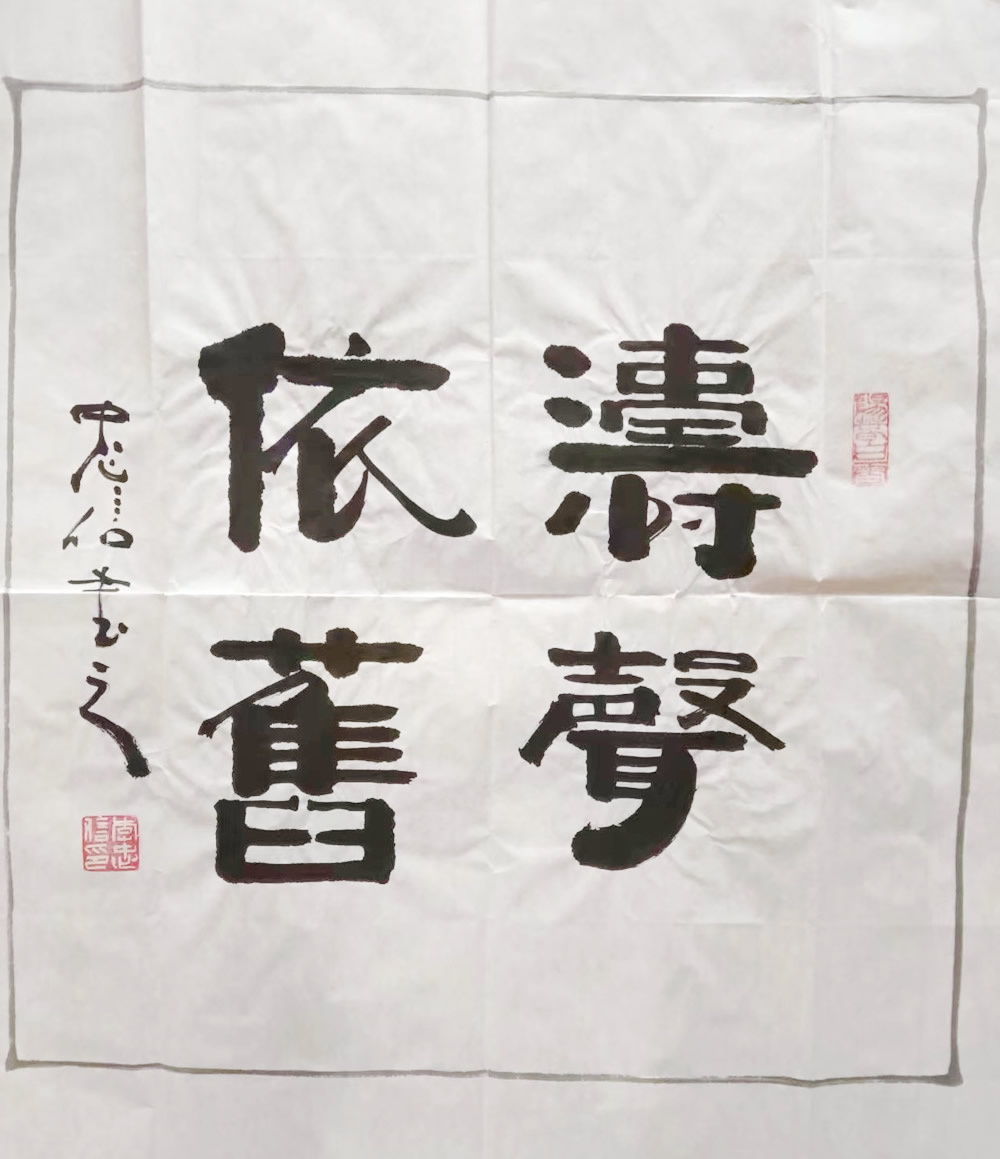 濤聲
依舊
忠信書之
李忠信印